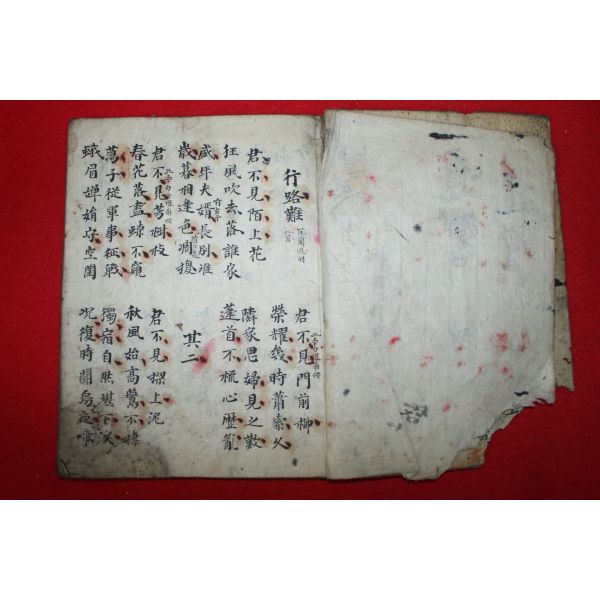 行路難
君不見門前柳
榮耀幾時蕭索久
君不見陌上花
狂風吹去落誰家
隣家思婦見之歎
蓬首不梳心歷亂
盛年夫婿長別離
歲暮相逢色凋換
其二
君不見芳樹枝
春花落盡蜂不窺
君不見樑上泥
秋風始高鷰不棲
蕩子從軍事征戰
蛾眉嬋娟守空閨
獨宿自然堪下淚
況復時聞烏夜啼